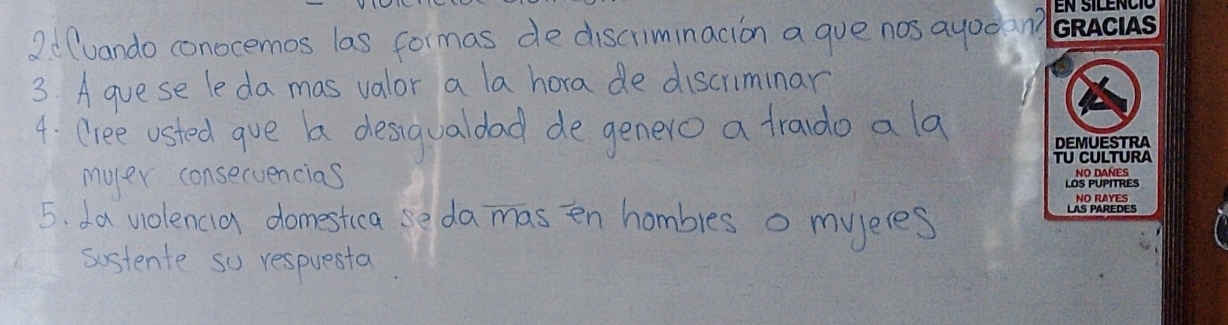 2. ¿Cuando conocemos las formas de discriminación a que nos ayudan?
3. A que se le da mas valor a la hora de discriminar
4. Cree usted que la desigualdad de genero a traido a la
mujer consecuencias
5. La violencia domestica se da mas en hombres o mujeres
sustente su respuesta
EN SILENCIO
GRACIAS
DEMUESTRA
TU CULTURA
NO DAÑES
LOS PUPITRES
NO RAYES
LAS PAREDES